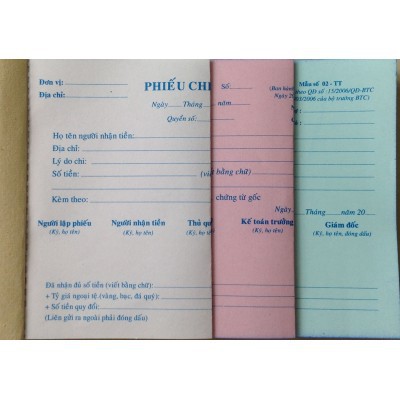 Đơn vị: PHIẾU CHI Số: Mẫu số 02 - TT
Địa chỉ: (Ban hành theo QĐ số : 15/2006/QĐ-BTC
Ngày tháng năm Ngày 20 /03/2006 của bộ trưởng-BTC)
Quyển số:
Họ tên người nhận tiền:
Địa chỉ:
Lý do chi:
Số tiền: (viết bằng chữ)
Kèm theo: chứng từ gốc
Ngày Tháng năm 20
Người lập phiếu Người nhận tiền Thủ qu Kế toán trưởng Giám đốc
(Ký, họ tên) (Ký, họ tên) (Ký, họ (Ký, họ tên) (Ký, họ tên, đóng dấu)
Đã nhận đủ số tiền (viết bằng chữ):
+ Tỷ giá ngoại tệ (vàng, bạc, đá quý):
+ Số tiền quy đổi:
(Liên gửi ra ngoài phải đóng dấu)